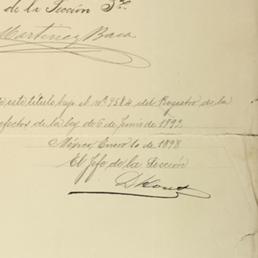 de la Sección 3ª
Martinez Baca
este título bajo el nº 9584 del Registro de la
efectos de la ley de 6 de Junio de 1892
México Enero 10 de 1898
El Jefe de la Sección